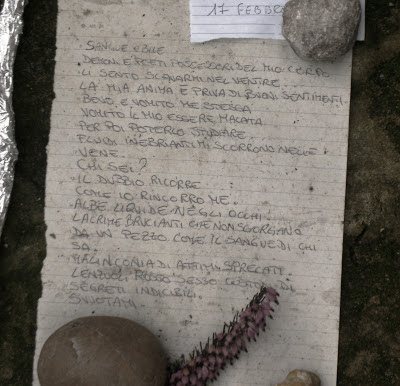 17 FEBBR
SANGUE E BILE.
DEMONI E FETI POSSESSORI DEL MIO CORPO
LI SENTO SCANARMI NEL VENTRE.
LA MIA ANIMA È PRIVA DI BUONI SENTIMENTI.
BEVO E VOMITO ME STESSA.
VOMITO IL MIO ESSERE MALATA
PER POI POTERLO STUDIARE.
FLUIDI INEBRIANTI MI SCORRONO NELLE
VENE.
CHI SEI?
IL DUBBIO RICORRE
COME IO RINCORRO ME.
ALBE LIQUIDE NEGLI OCCHI.
LACRIME BRUCIANTI CHE NON SGORGANO
DA UN PEZZO COME IL SANGUE DI CHI
SA.
MALINCONIA DI ATTIMI SPRECATI.
LENZUOL ROSSO SESSO CUSTODI DI
SEGRETI INDICIBILI.
SVUOTAMI.